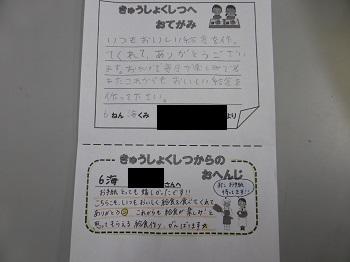 きゅうしょくしつへ
おてがみ
いつもおいしい給食を作っ
てくれて、ありがとうござい
ます。おかげで毎日が楽しみです。
またこれからもおいしい給食を
作ってください。
6ねん 海くみ より
きゅうしょくしつからの
おへんじ
6海 さんへ
お手紙とっても嬉しかったです!!
こちらこそ、いつもおいしく給食を食べてくれて
ありがとう これからも給食が楽しみ!と
思ってもらえる給食作り、がんばります